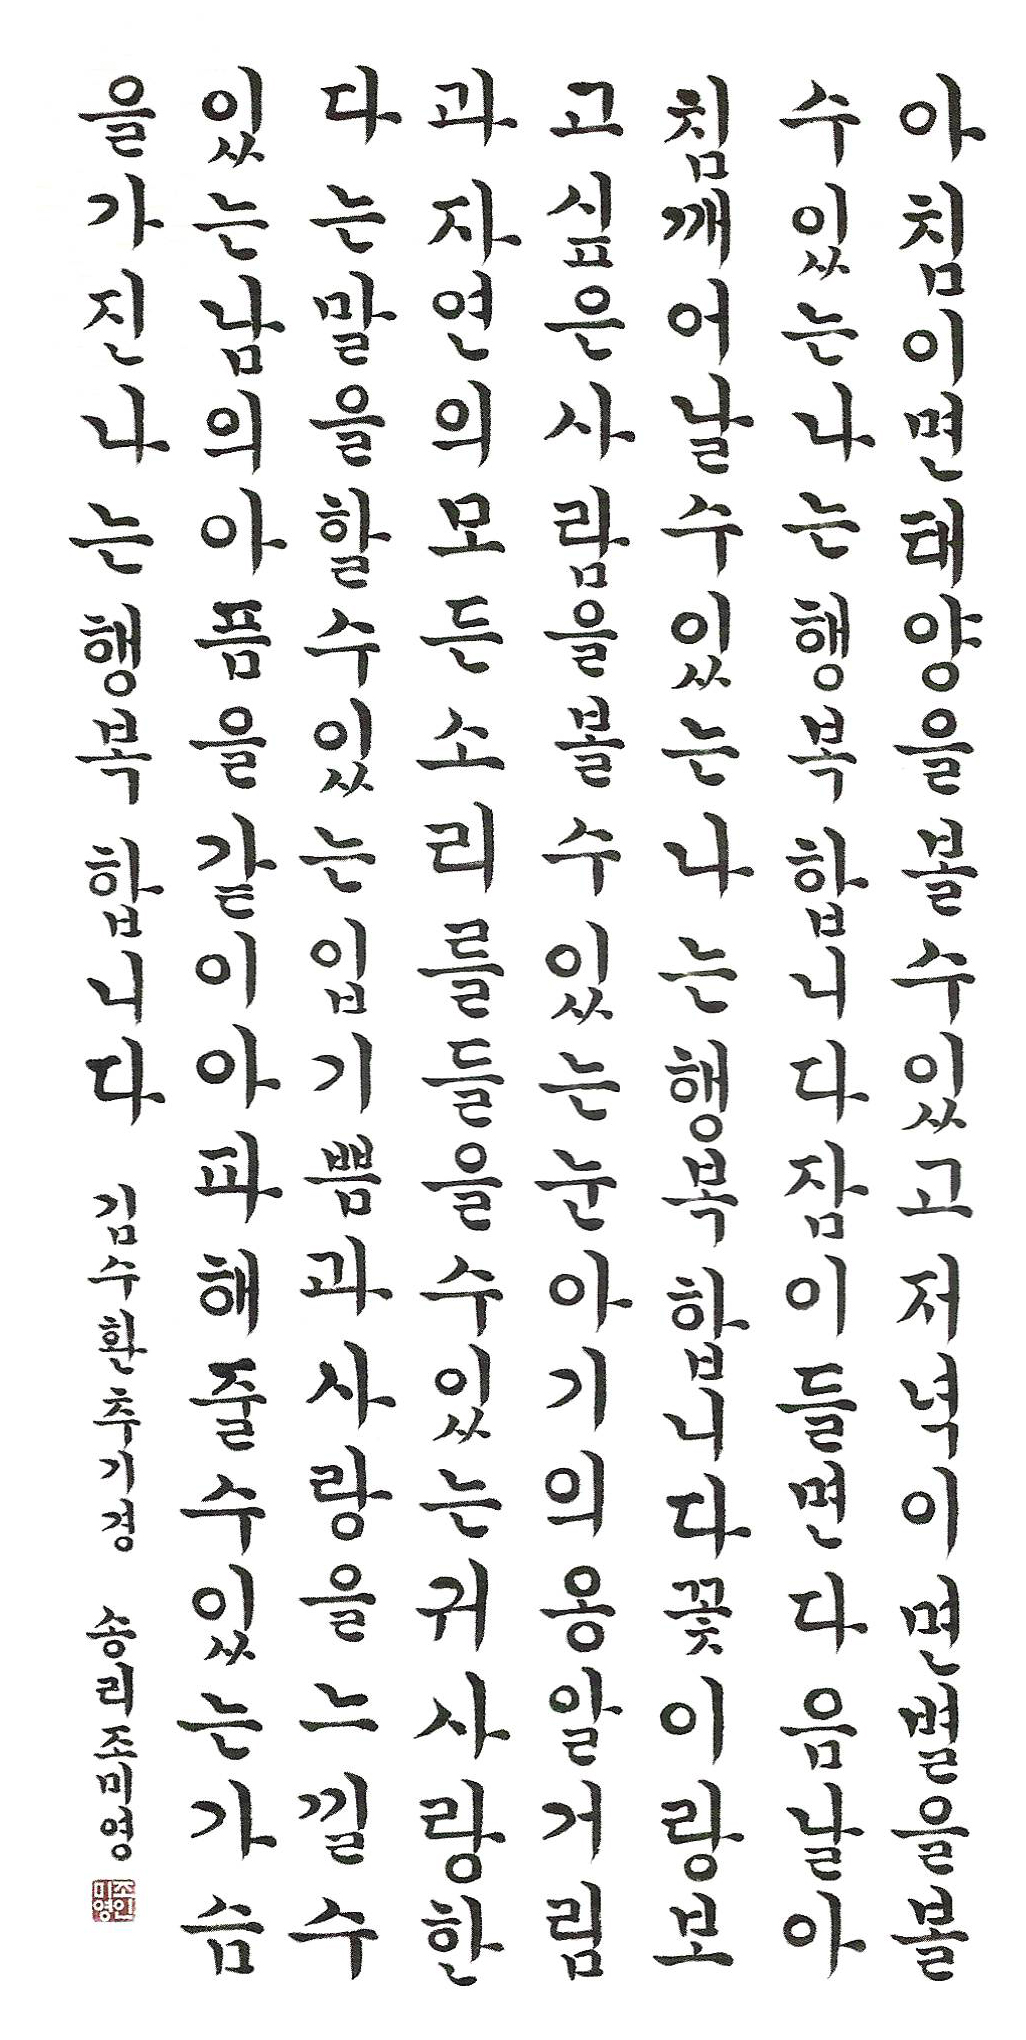 아침이면태양을볼수있고저녁이면별을볼
수있는나는행복합니다잠이들면다음날아
침깨어날수있는나는행복합니다꽃이랑보
고싶은사람을볼수있는눈아기의옹알거림
과자연의모든소리를들을수있는귀사랑한
다는말을할수있는입기쁨과사랑을느낄수
있는남의아픔을같이아파해줄수있는가슴
을가진나는행복합니다 김수환추기경 송리조미영
조인
미영